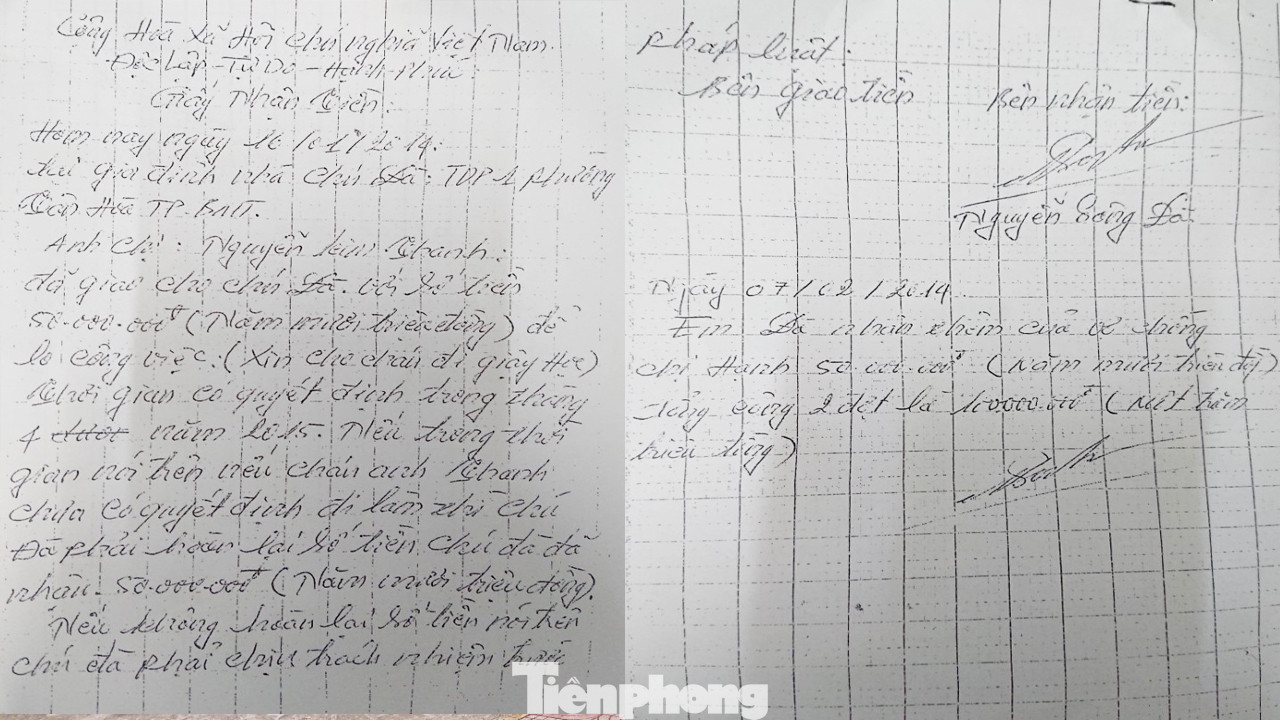 Cộng Hoà Xã Hội Chủ nghĩa Việt Nam.
Độc Lập - Tự Do - Hạnh Phúc
Giấy Nhận Tiền:
Hôm nay ngày 16/01/2014:
tại gia đình nhà chú Đà: TDP 1 phường
Tân Hoà TP. BMT.
Anh Chị: Nguyễn Kim Thanh:
đã giao cho chú Đà. với số tiền
50.000.000đ (Năm mươi triệu đồng) để
lo công việc: (Xin cho cháu đi giậy Học)
Thời gian có quyết định trong tháng
4 năm 2015. Nếu trong thời
gian nói trên nếu cháu anh Thanh
chưa có quyết định đi làm thì chú
Đà phải hoàn lại số tiền chú đà đã
nhận. 50.000.000đ (Năm mươi triệu đồng).
Nếu không hoàn lại số tiền nói trên
chú đà phải chịu trách nhiệm trước
pháp luật:
Bên giao tiền
Bên nhận tiền:
Nguyễn Đà
Ngày 07/02/2014
Em Đà nhận thêm của vợ chồng
chị Hạnh 50.000.000đ (Năm mươi triệu đồng)
Tổng cộng 2 đợt là 100000.000đ (Một trăm
triệu đồng)
Tiênphong